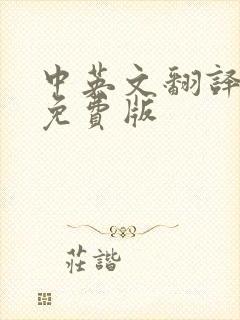 中英文翻譯
免費版
莊諧